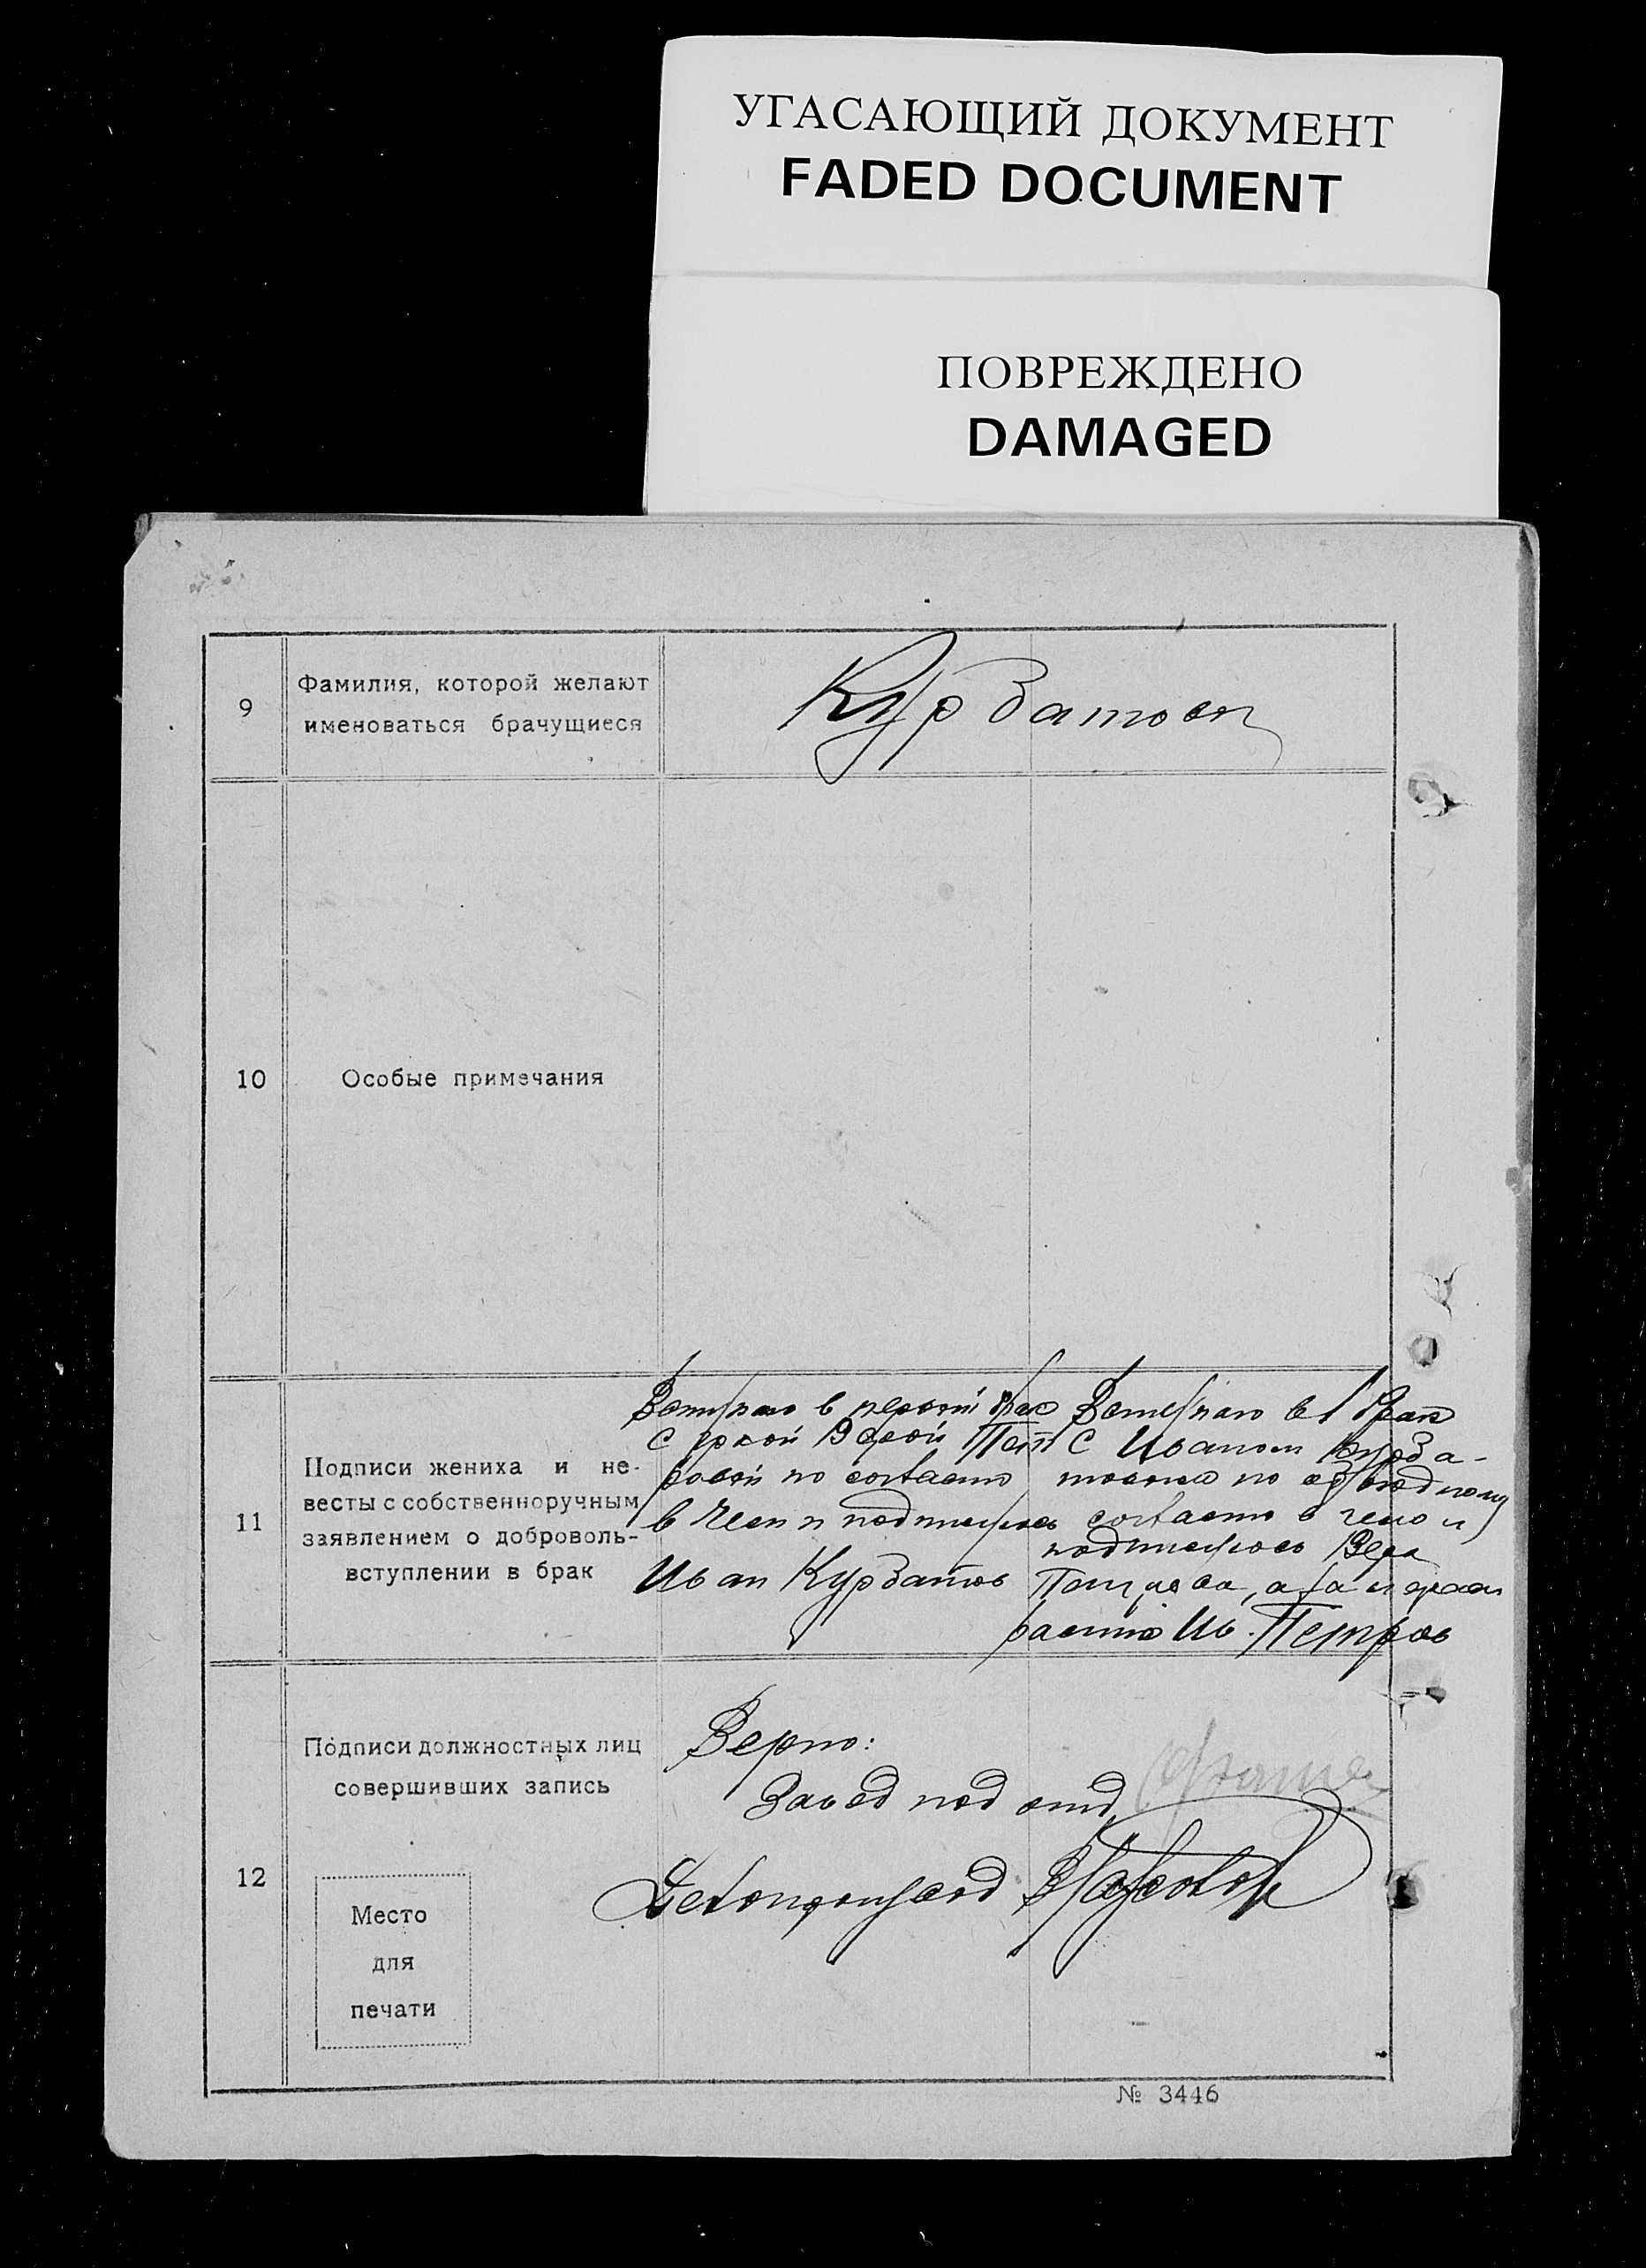 УГАСАЮЩИЙ ДОКУМЕНТ
FADED DOCUMENT
ПОВРЕЖДЕНО
DAMAGED
9
Фамилия, которой желают
именоваться брачущиеся
Курбатовы
10
Особые примечания
11
Подписи жениха и не-
весты с собственноручным
заявлением о доброволь-
вступлении в брак
Вступаю в первый брак
с гркой Верой Пет
ровой по согласию
в чем и подписуюсь
Иван Курбатов
Вступаю в 1 брак
с Иваном Курба-
товым по обоюдному
согласию в чем и
подписуюсь Вера
Петрова, а за неграм
Ив. Петров
12
Подписи должностных лиц
совершивших запись
Место
для
печати
Верно:
Завед под отд
Делопроизвод
№ 3446